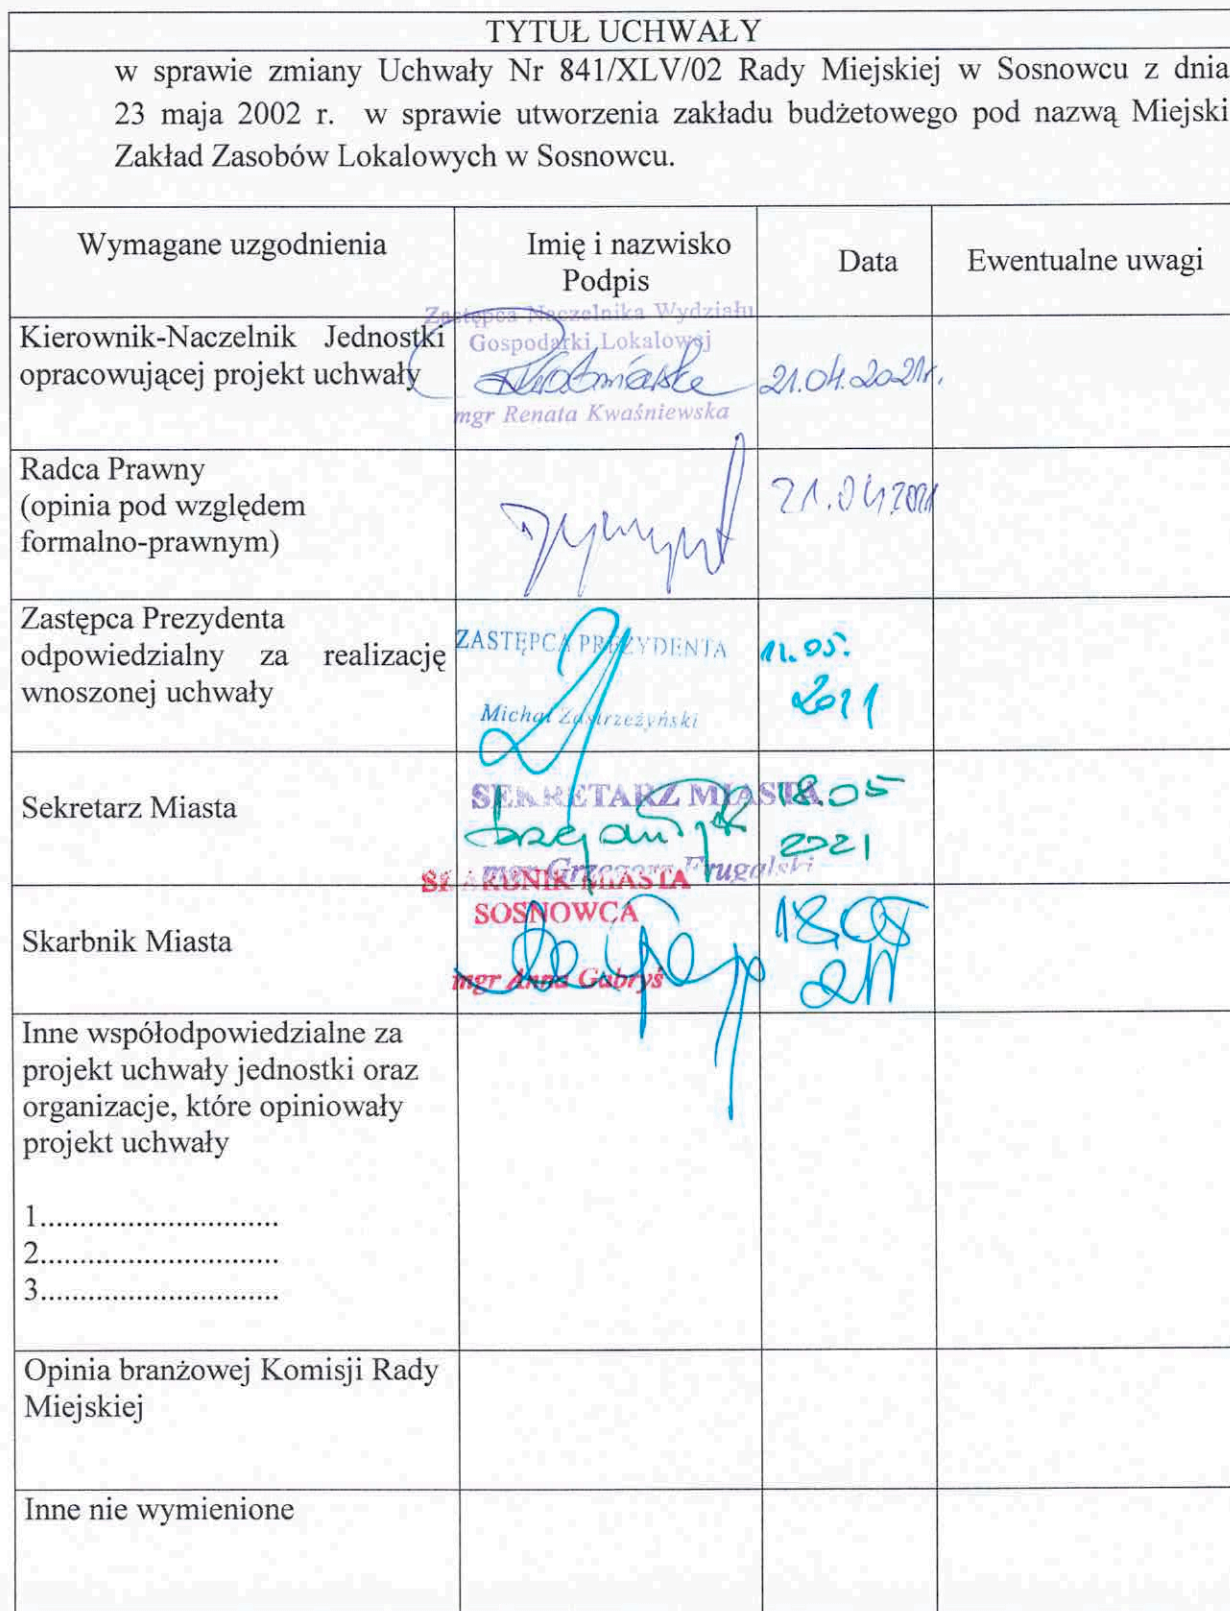 TYTUŁ UCHWAŁY
w sprawie zmiany Uchwały Nr 841/XLV/02 Rady Miejskiej w Sosnowcu z dnia
23 maja 2002 r. w sprawie utworzenia zakładu budżetowego pod nazwą Miejski
Zakład Zasobów Lokalowych w Sosnowcu.
Wymagane uzgodnienia
Imię i nazwisko
Podpis
Data
Ewentualne uwagi
Kierownik-Naczelnik Jednostki
opracowującej projekt uchwały
Zastępca Naczelnika Wydziału
Gospodarki Lokalowej
mgr Renata Kwaśniewska
21.04.2021r.
Radca Prawny
(opinia pod względem
formalno-prawnym)
21.04.2021
Zastępca Prezydenta
odpowiedzialny za realizację
wnoszonej uchwały
ZASTĘPCA PREZYDENTA
Michał Zastrzeżyński
11.05.
2021
Sekretarz Miasta
SEKRETARZ MIASTA
mgr Grzegorz Frugalski
18.05
2021
Skarbnik Miasta
SKARBNIK MIASTA
SOSNOWCA
mgr Anna Gabryś
18.05
Inne współodpowiedzialne za
projekt uchwały jednostki oraz
organizacje, które opiniowały
projekt uchwały
1..............................
2..............................
3..............................
Opinia branżowej Komisji Rady
Miejskiej
Inne nie wymienione